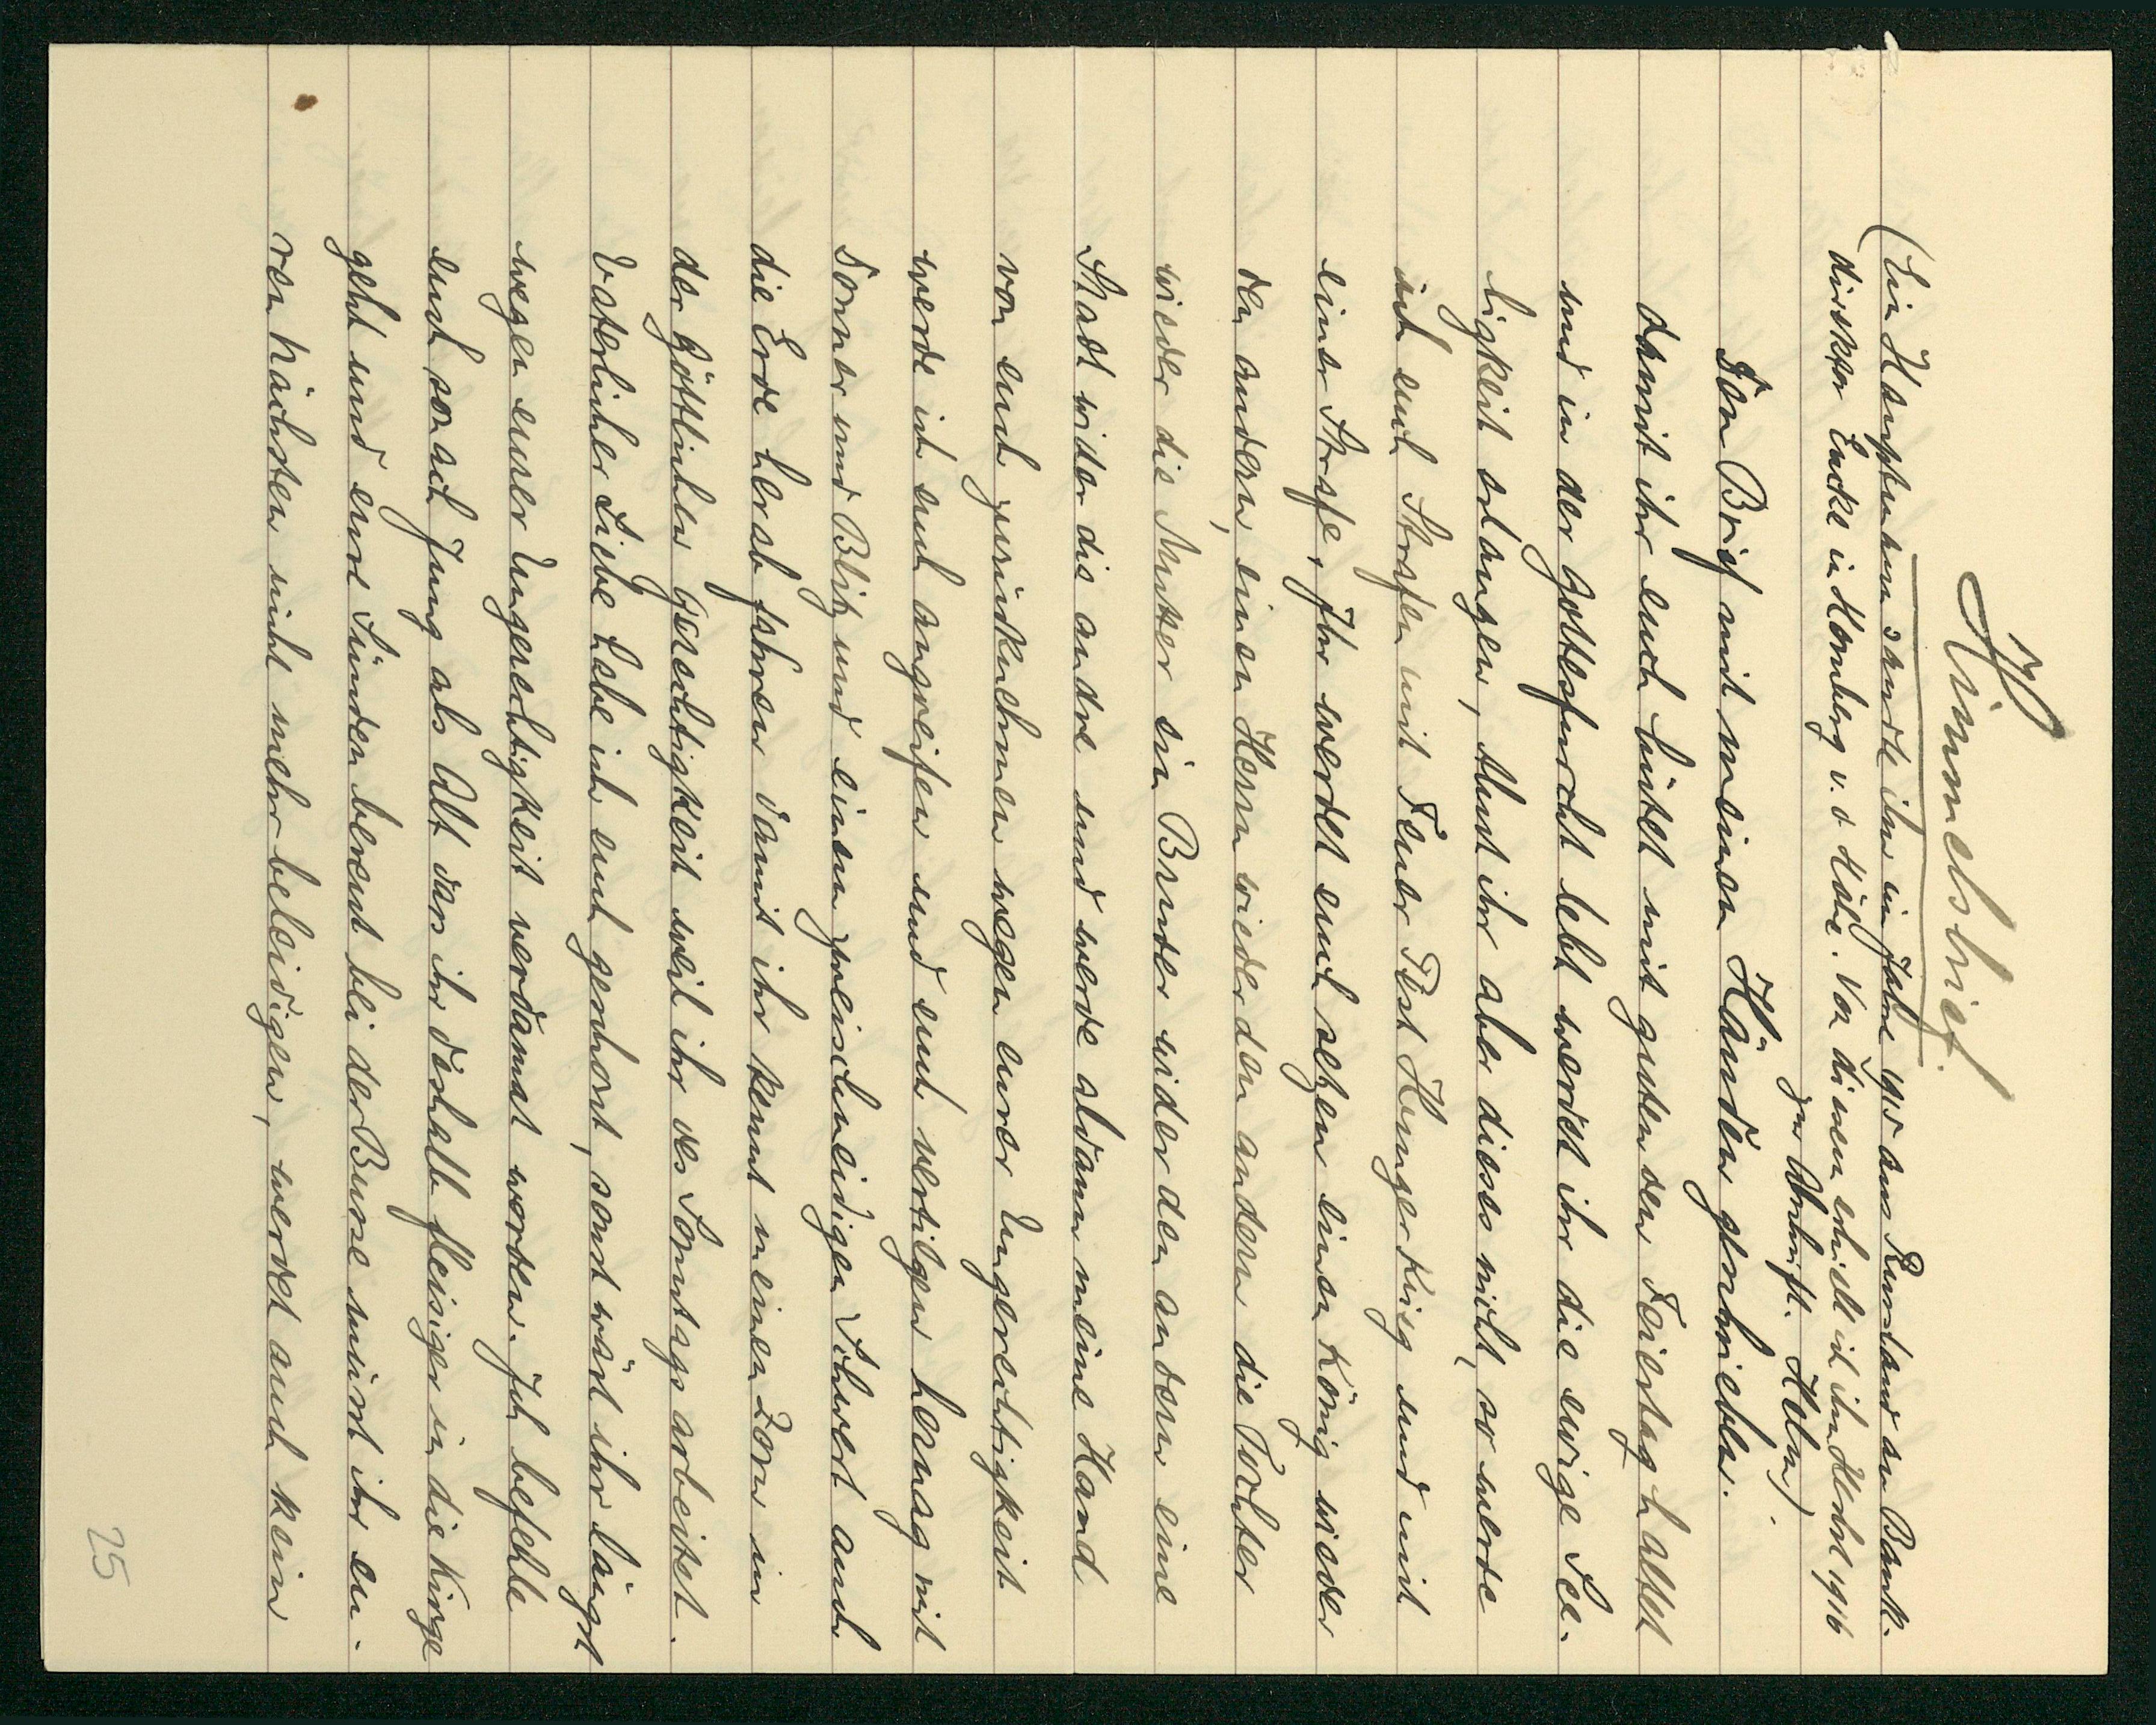 Himmelsbrief.
(Ein Hauptmann sandte ihn im Jahre 1915 aus Russland an Bank-
direktor Encke in Homburg v. d. Höhe. Von diesem erhielt ich ihn Herbst 1916
zur Abschrift. Holm)
Den Brief mit meinen Händen geschrieben.
damit ihr euch hütet mit guten den Feiertag haltet
und in der Gottesfurcht lebt werdet ihr die ewige See-
ligkeit erlangen, thut ihr aber dieses nicht, so werde
ich euch Strafen mit Feuer Pest Hunger Krieg und mit
einer Strafe, Ihr werdet euch setzen einen König wieder
den andern, einen Herrn wieder den andern die Tochter
wieder die Mutter ein Bruder wider den andern eine
Stadt wider die andre und werde aldann meine Hand
von euch zurücknehmen wegen eurer Ungerechtigkeit
werde ich euch angreifen und euch vertilgen hernag mit
Donner und Blitz und einem zweischneidigen Schwert auch
die Erde herab fahren damit ihr kennt meinen Zorn in
der göttlichen Gerechtigkeit weil ihr des Sonntags arbeitet.
Vaterlicher Liebe habe ich euch geschont, sonst wärt ihr längst
wegen eurer Ungerechtigkeit verdamat worden. Ich befehle
euch sonach Jung als Alt das ihr dashalb fleisiger in die Kirge
geht und eure Sünden bereut bei der Busse müsst ihr eu-
ren nächsten nicht mehr beleidigen, werdet auch kein
25